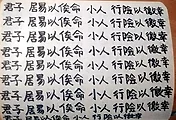 君子 居易以俟命 小人 行險以徼幸
君子 居易以俟命 小人 行險以徼幸
君子 居易以俟命 小人 行險以徼幸
君子 居易以俟命 小人 行險以徼幸
君子 居易以俟命 小人 行險以徼幸
君子 居易以俟命 小人 行險以徼幸
君子 居易以俟命 小人 行險以徼幸